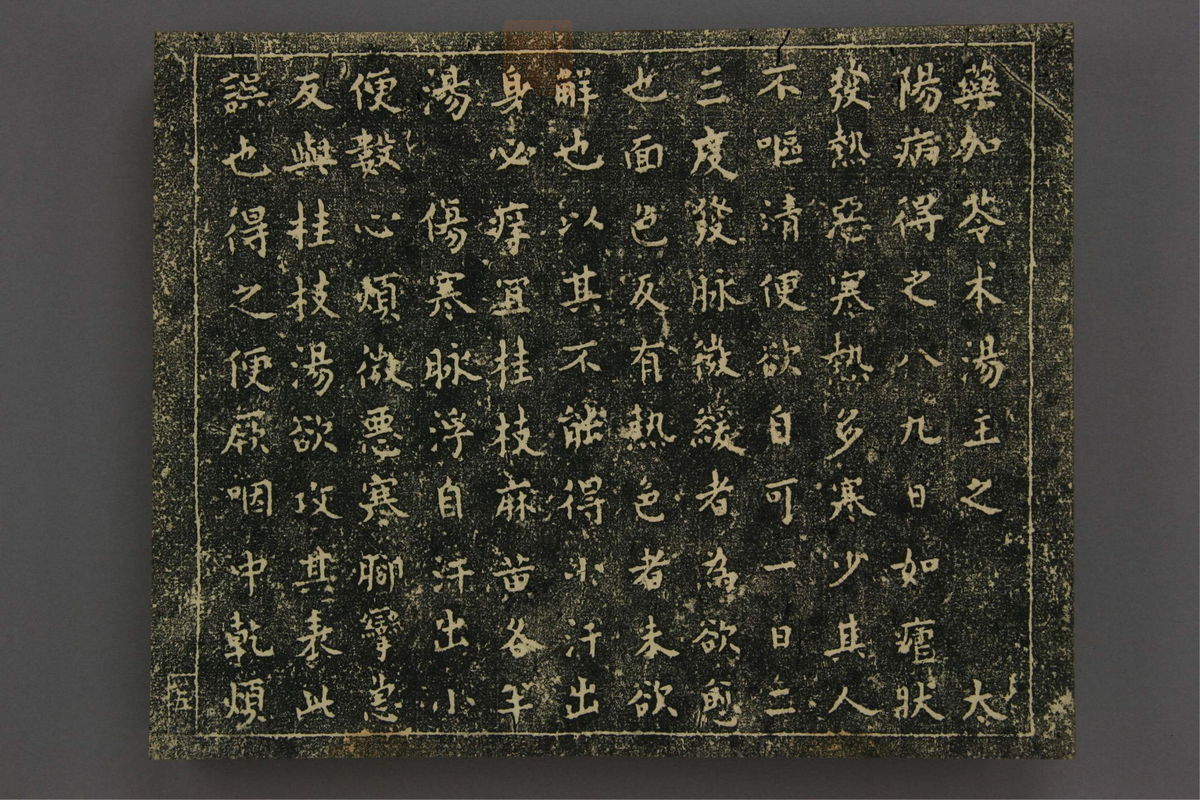 藥加苓术湯主之　太
陽病得之八九日如瘧狀
發熱惡寒熱多寒少其人
不嘔清便欲自可一日二
三度發脉微緩者為欲愈
也面色反有熱色者未欲
解也以其不能得小汗出
身必痒宜桂枝麻黄各半
湯　傷寒脉浮自汗出小
便數心煩微惡寒腳攣急
反與桂枝湯欲攻其表此
誤也得之便厥咽中乾煩